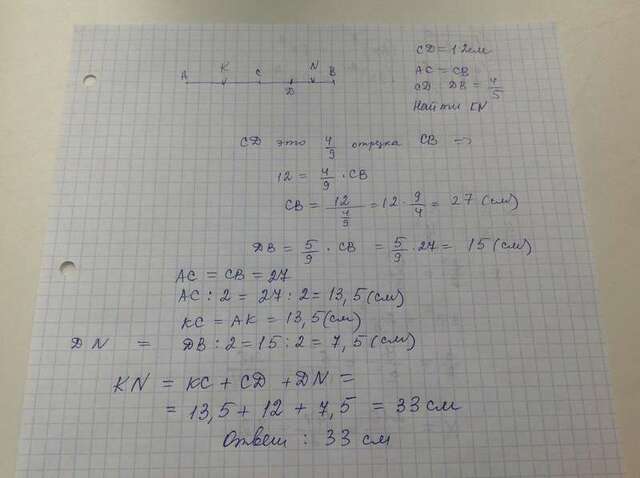 CD = 12 см
AC = CB
CD : DB = 4/5
Найти KN
A K C D N B
CD это 4/9 отрезка CB =>
12 = 4/9 · CB
CB = 12/(4/9) = 12 · 9/4 = 27 (см)
DB = 5/9 · CB = 5/9 · 27 = 15 (см)
AC = CB = 27
AC : 2 = 27 : 2 = 13,5 (см)
KC = AK = 13,5 (см)
DN = DB : 2 = 15 : 2 = 7,5 (см)
KN = KC + CD + DN =
= 13,5 + 12 + 7,5 = 33 см
Ответ : 33 см